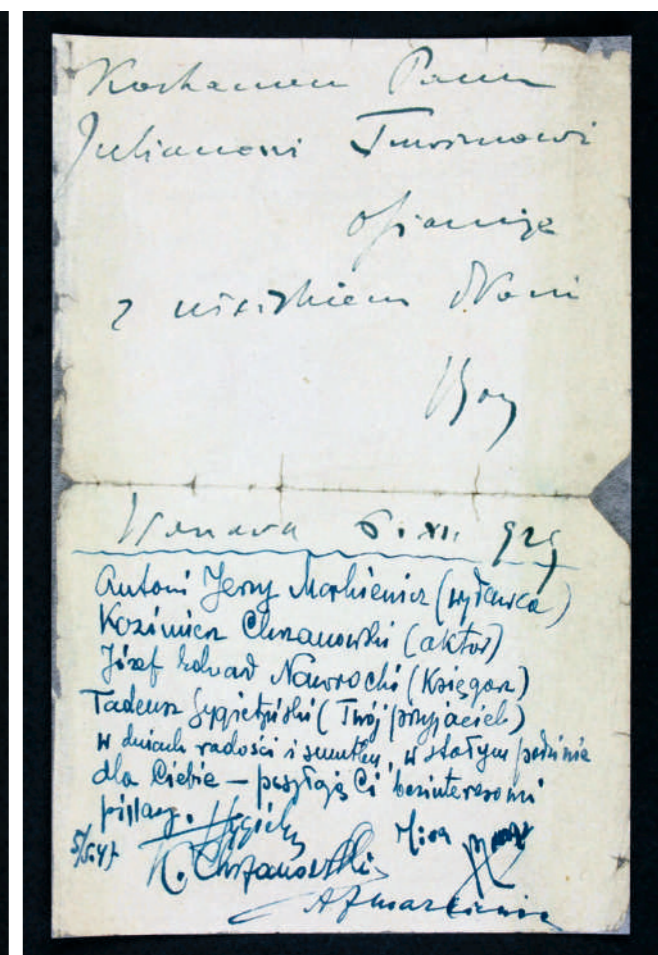 Kochanemu Panu
Julianowi Tuwimowi
ofiaruję
z uściskiem dłoni
Boy
Warszawa 6. XII. 929
Antoni Jerzy Markiewicz (wydawca)
Kazimierz Chrzanowski (aktor)
Józef Edward Nawrocki (Księgarz)
Tadeusz Sygietyński (Twój przyjaciel)
w dniach radości i smutku, w stałym podziwie
dla Ciebie — posyłają Ci bezinteresowni
5/5.47
K. Chrzanowski